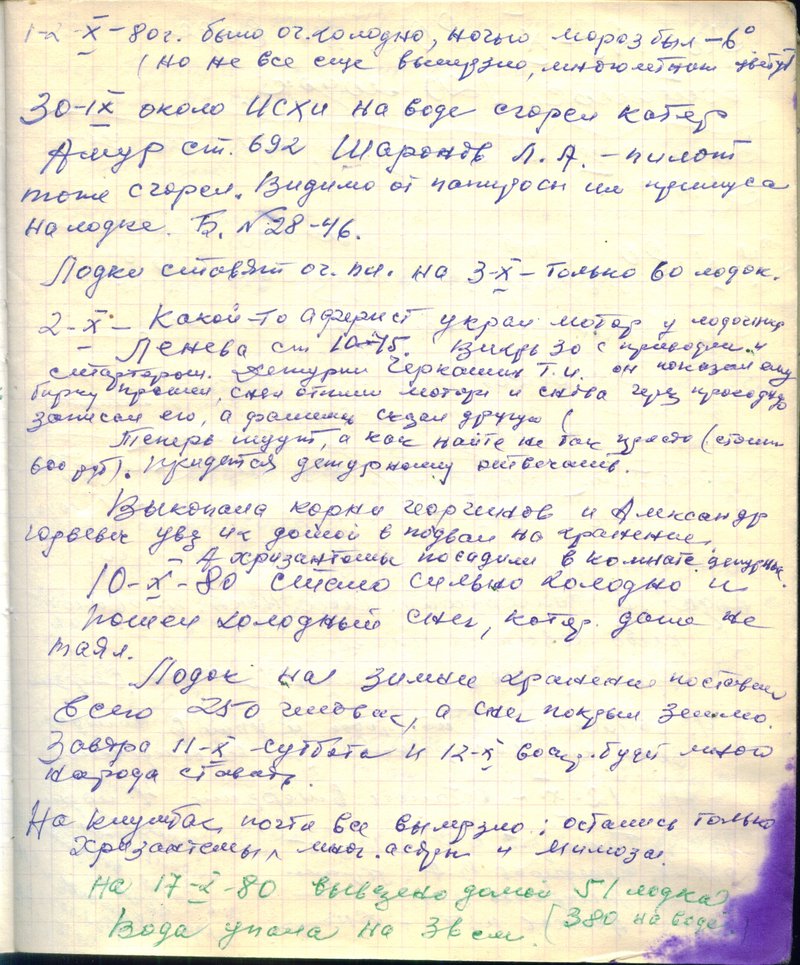 1-2-X-80г. было оч. холодно, ночью мороз был -6°
(но не все еще вымерзло, многолетн цветут
30-IX около ИСХИ на воде сгорел катер
Амур ст. 692 Шаронов Л. А. - пилот
тоже сгорел. Видимо от папиросы или примуса
на лодке. Б. №28-46.
Лодки ставят оч. пл. на 3-X- только 60 лодок.
2-X- Какой-то аферист украл мотор у лодочника
Ленева ст 10-15. Вихрь 30 с проводом и
стартером. Дежурил Черкашин Т. И. он показал ему
бирку прошел, снял отнял мотор и снова через проходную
записал его, а фамилию сказал другую (
Теперь ищут, а как найти не так просто (стоит
600 руб). Придется дежурному отвечать.
Выкопала корни георгинов и Александр
увз их домой в подвал на хранение,
А хризантемы посадили в комнате дежурных.
10-X-80 стало сильно холодно и
пошел холодный снег, котор. даже не
таял.
Лодок на зимнее хранение поставили
всего 250 человек, а снег покрыл землю.
Завтра 11-X суббота и 12-X воскр. будет много
народа ставать.
На клумбах почти все вымерзло; остались только
хризантемы, мног. астры и мимоза.
На 17-X-80 вывезено домой 51 лодка
(380 на воде)
Вода упала на 38 см.